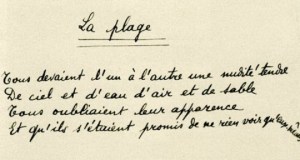 La plage
Tous devaient l'un à l'autre une nudité tendre
De ciel et d'eau d'air et de sable
Tous oubliaient leur apparence
Et qu'ils s'étaient promis de ne rien voir qu'eux-mêmes